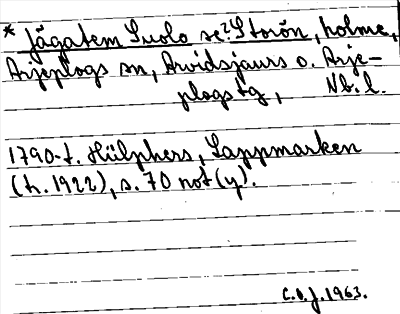 * Jågatem Suolo se ²Storön, holme,
Arjeplogs sn, Arvidsjaurs o. Arje-
plogs tg, Nb. l.
1790-t. Hülphers, Lappmarken
(h. 1922), s. 70 not (y).
C.O.J. 1963.